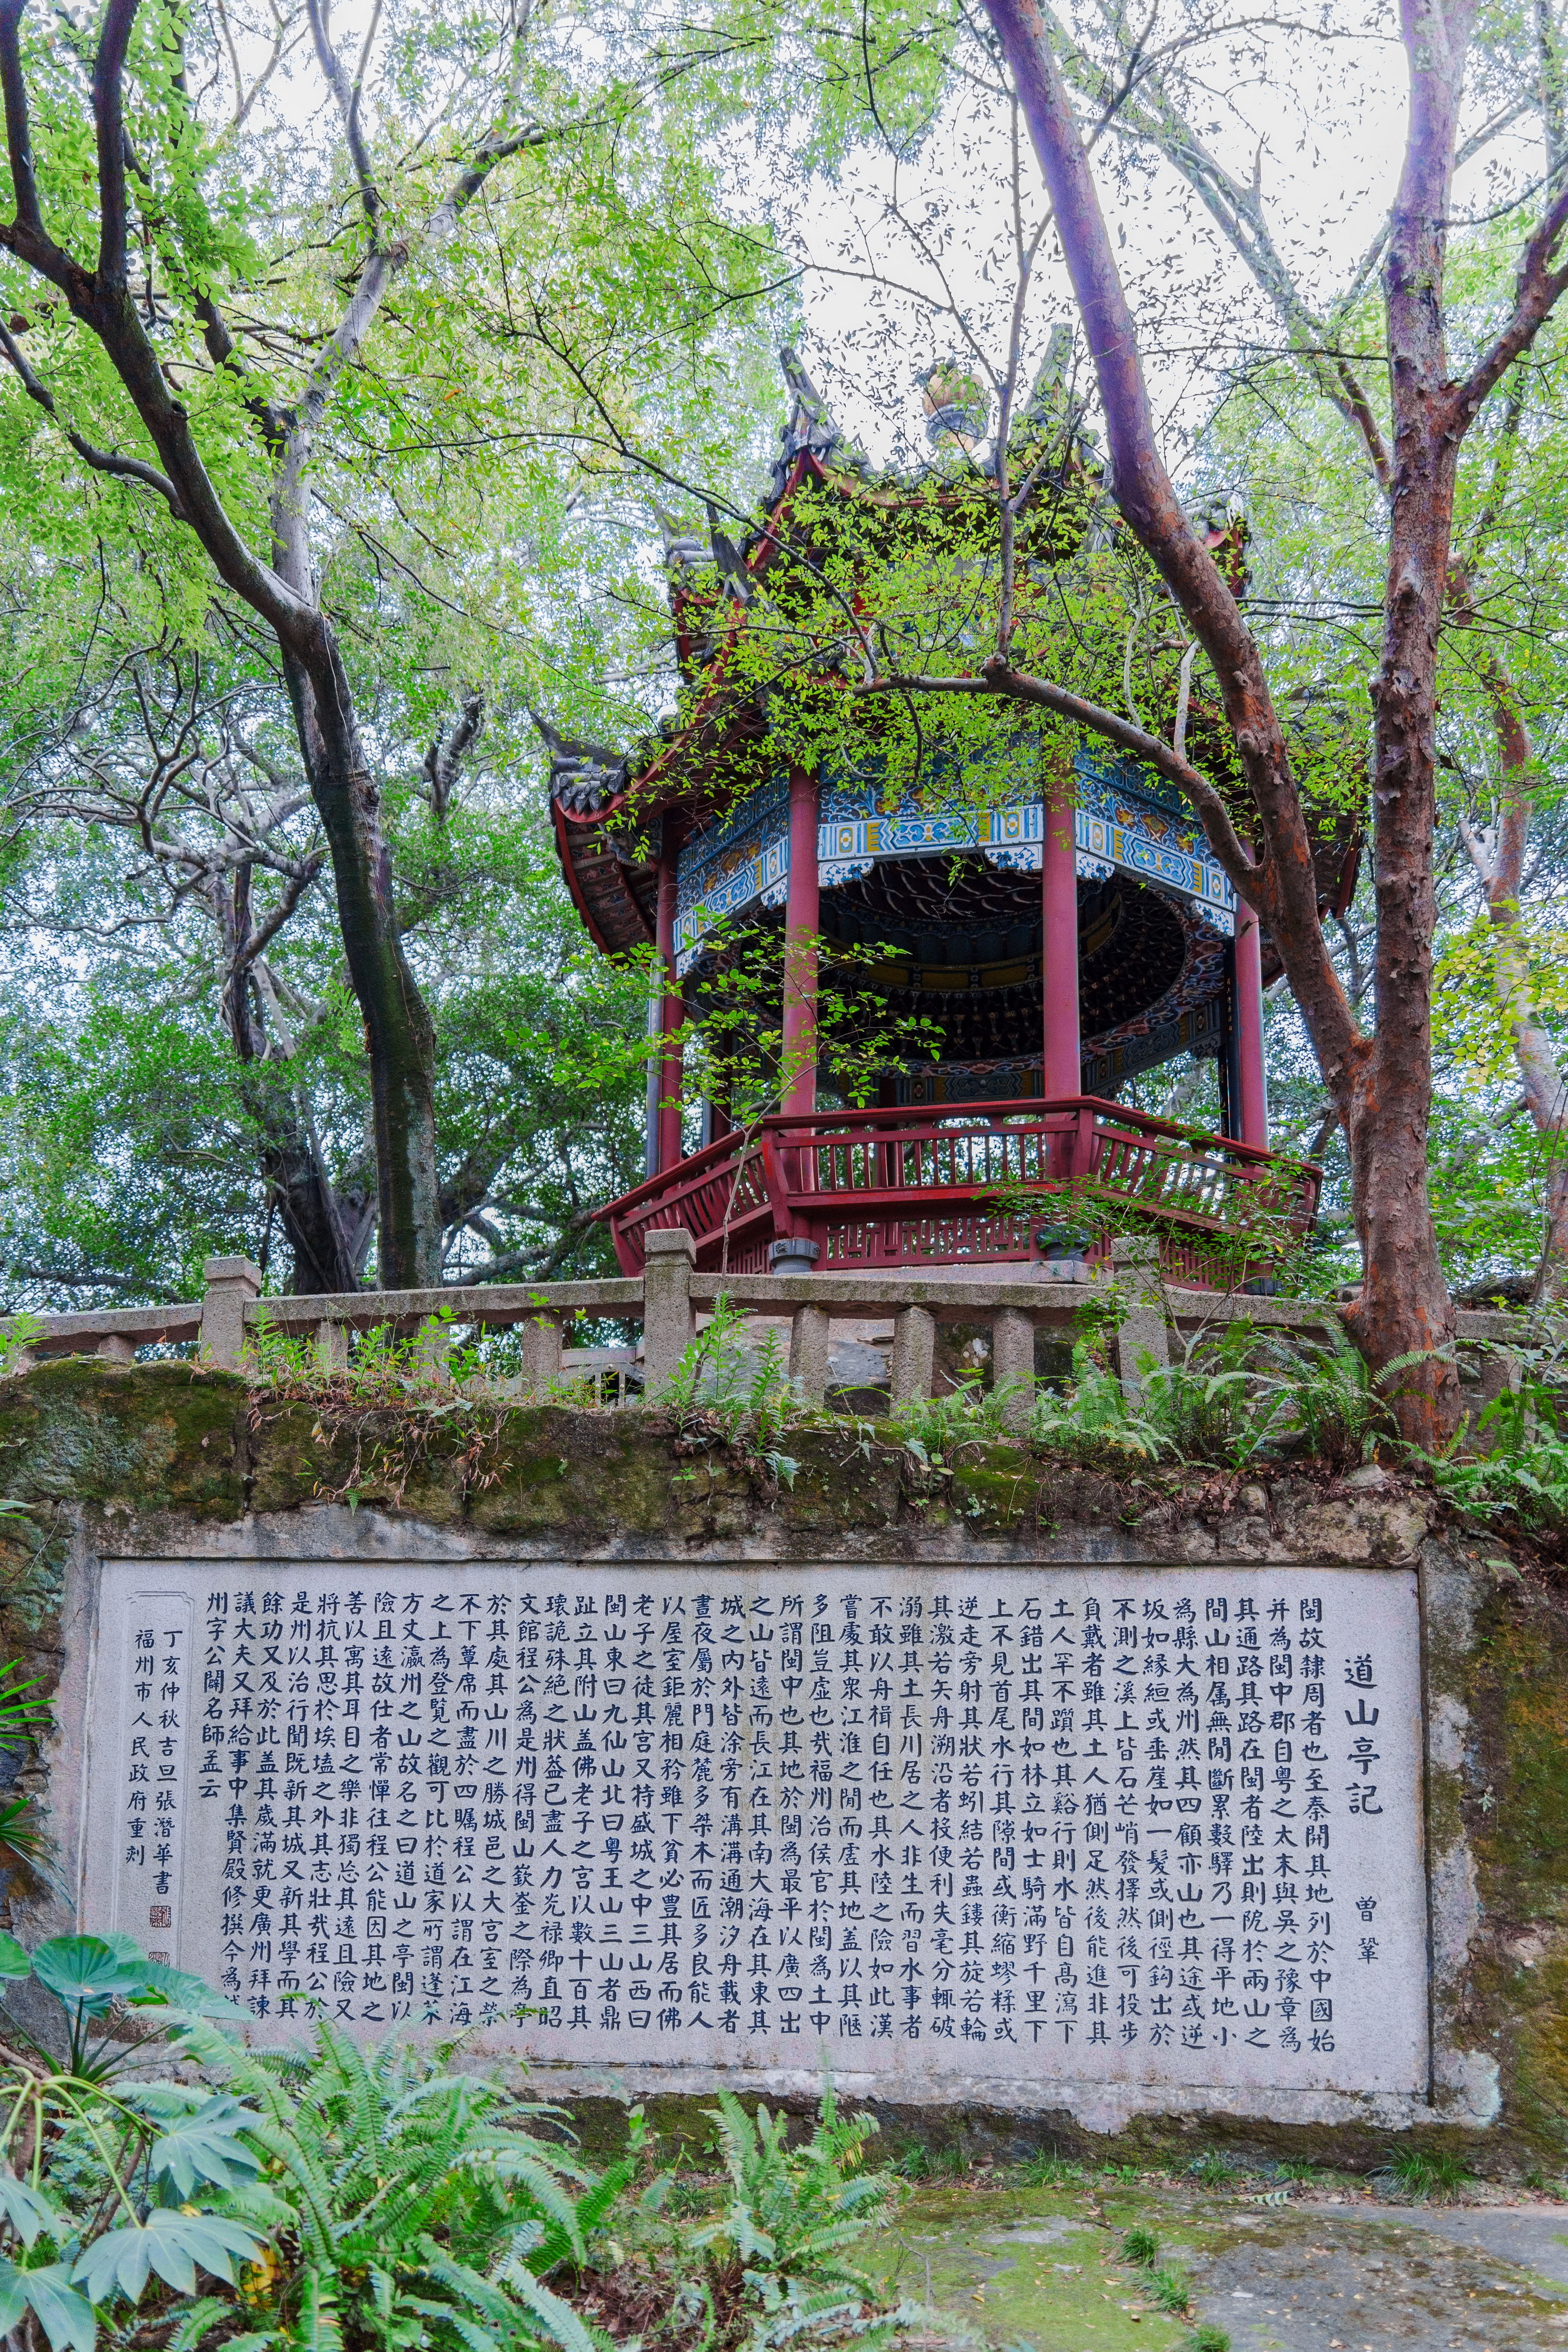 道山亭記 曾鞏
閩故隸周者也至秦開其地列於中國始
并為閩中郡自粵之太末與吳之豫章為
其通路其路在閩者陸出則阸於兩山之
間山相屬無閒斷累數驛乃一得平地小
為縣大為州然其四顧亦山也其途或逆
坂如緣絙或垂崖如一髮或側徑鉤出於
不測之溪上皆石芒峭發擇然後可投步
負戴者雖其土人猶側足然後能進非其
土人罕不躓也其谿行則水皆自高瀉下
石錯出其間如林立如士騎滿野千里下
上不見首尾水行其隙間或衡縮蟉糅或
逆走旁射其狀若蚓結若蟲鏤其旋若輪
其激若矢舟溯沿者投便利失毫分輒破
溺雖其土長川居之人非生而習水事者
不敢以舟楫自任也其水陸之險如此漢
嘗處其眾江淮之閒而虛其地蓋以其陿
多阻豈虛也哉福州治侯官於閩為土中
所謂閩中也其地於閩為最平以廣四出
之山皆遠而長江在其南大海在其東其
城之內外皆涂旁有溝溝通潮汐舟載者
晝夜屬於門庭麓多桀木而匠多良能人
以屋室鉅麗相矜雖下貧必豐其居而佛
老子之徒其宮又特盛城之中三山西曰
閩山東曰九仙山北曰粵王山三山者鼎
趾立其附山蓋佛老子之宮以數十百其
瓌詭殊絕之狀蓋已盡人力光祿卿直昭
文館程公為是州得閩山嶔崟之際為亭
於其處其山川之勝城邑之大宮室之榮
不下簟席而盡於四矚程公以謂在江海
之上為登覽之觀可比於道家所謂蓬萊
方丈瀛州之山故名之曰道山之亭閩以
險且遠故仕者常憚往程公能因其地之
善以寓其耳目之樂非獨忘其遠且險又
將抗其思於埃壒之外其志壯哉程公於
是州以治行聞既新其城又新其學而其
餘功又及於此蓋其歲滿就更廣州拜諫
議大夫又拜給事中集賢殿修撰今為
州字公闢名師孟云
丁亥仲秋吉旦張潛華書
福州市人民政府重刻